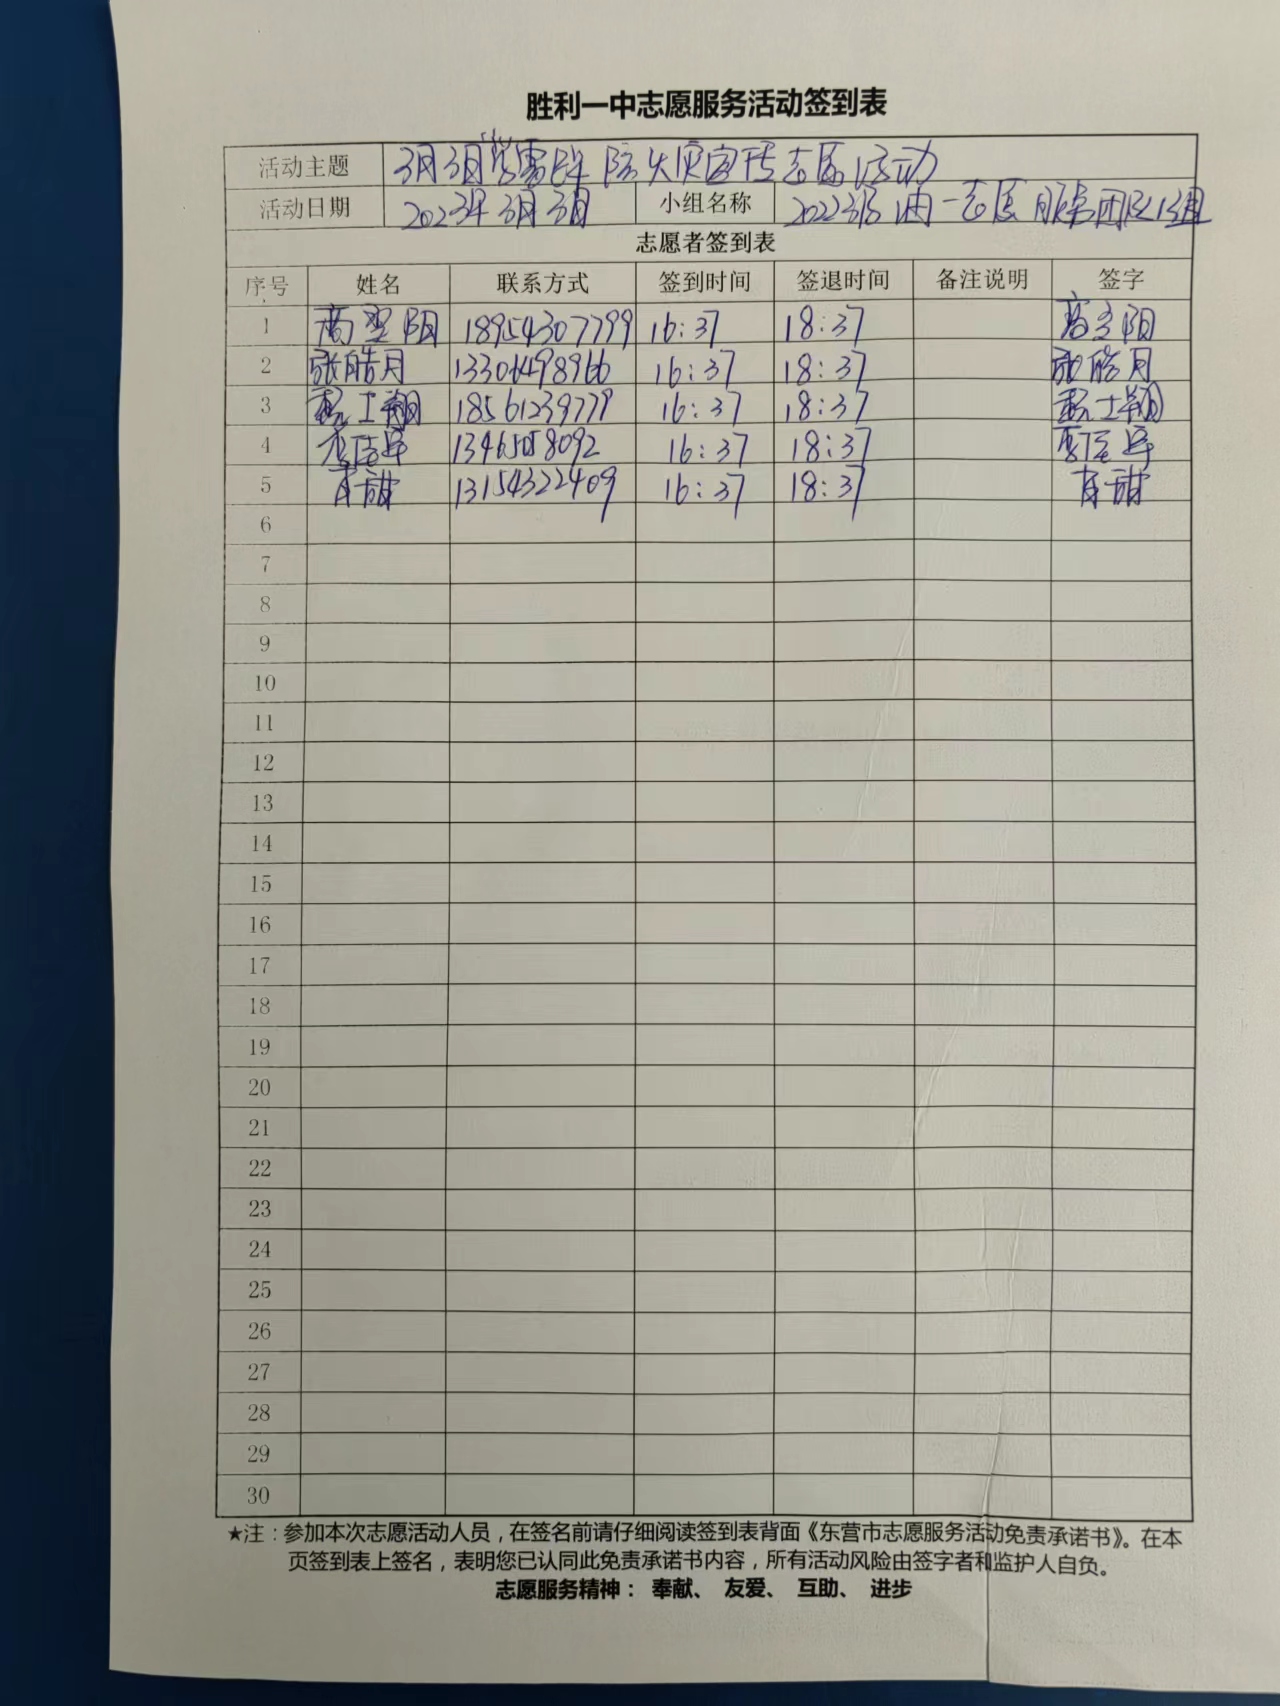 胜利一中志愿服务活动签到表
活动主题 3月3日学雷锋防火灾宣传志愿活动
活动日期 2023年3月3日 小组名称 2022级 一志愿服务团队13组
志愿者签到表
序号 姓名 联系方式 签到时间 签退时间 备注说明 签字
1 高 阳 18954307799 16:37 18:37 高 阳
2 张皓月 13306498966 16:37 18:37 张皓月
3 士翔 18561239779 16:37 18:37 士翔
4 李 13465058092 16:37 18:37 李
5 肖甜 13154322409 16:37 18:37 肖甜
6
7
8
9
10
11
12
13
14
15
16
17
18
19
20
21
22
23
24
25
26
27
28
29
30
★注：参加本次志愿活动人员，在签名前请仔细阅读签到表背面《东营市志愿服务活动免责承诺书》。在本
页签到表上签名，表明您已认同此免责承诺书内容，所有活动风险由签字者和监护人自负。
志愿服务精神： 奉献、 友爱、 互助、 进步